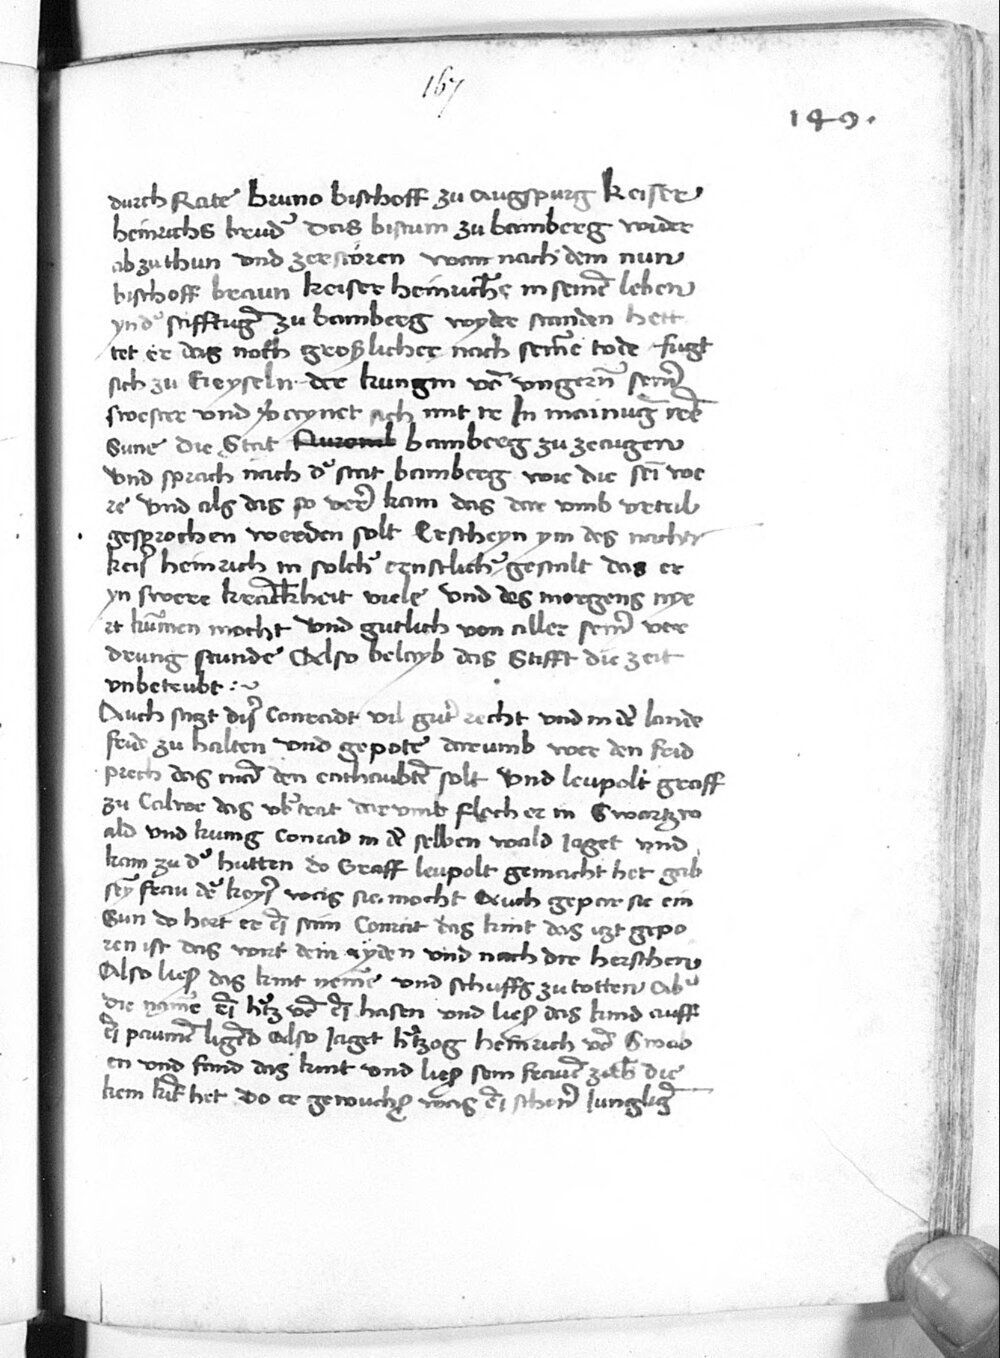 167
149.
durch Rate bruno bischoff zu Augspurg keiser
heinrichs brud' Das bistum zu bamberg wider
ab zu thun und zerstören wann nach dem nun
bischoff braun keiser heinrichs in seine leben
ynd' stifftug zu bamberg wyder standen hett
tet er das noch großlicher nach seine tode fugt
sich zu der kungin vo ungern sein
swester und ve aynet sich mit ir In mainug
Sune die Stat bamberg zu zeaugen
und sprach nach d' stat bamberg wie die sei we
re und als das so verr kam das dar umb urteil
gesprochen werden solt Erscheyn ym des nachts
keis' heinrich in solch' ernstlich' gestalt das er
yn swere kranckheit viele und des morgens nye
rt kumen mocht und gutlich von aller seiner vor
drung stunde Also belayb das Stifft die zeit
unbetrubt :~
Auch sagt dis' Conradt vil gut' recht und in de lande
fride zu halten und gepote darumb wer den frid
prech das mad den enthaubte solt und leupolt graff
zu Calwe das ub'trat darumb floch er in Swartzw
ald und kunig Conrad in de selben wald Jaget und
kam zu d' hutten do Graff leupolt gemacht het gab
sey frau de keys' was sie mocht Auch gepar sie ein
Sun do hort er ei stim Conrat das kint das itzt gepo
ren ist das wirt dein ayden und nach dir herschen
Also ließ das kint neme und schuffs zu totten Ab'
die name ei h'tz vo ei hasen und ließ das kind auff
ei paume ligend Also Jaget h'tzog heinrich vo Swab
en und fand das kint und ließ sein frauen die
kein het Do er gewuchs was ei schoner Jungling